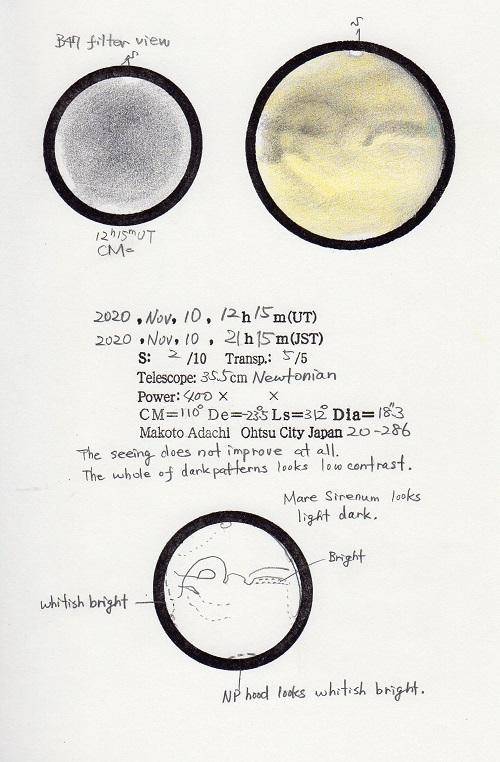 B47 filter view
S
S
12h15mUT
CM=
2020, Nov, 10, 12h15m(UT)
2020, Nov, 10, 21h15m(JST)
S: 2/10 Transp.: 5/5
Telescope: 35.5cm Newtonian
Power: 400× ×
CM=110° De=-23.5 Ls=312° Dia=18".3
Makoto Adachi Ohtsu City Japan 20-286
The seeing does not improve at all.
The whole of dark patterns looks low contrast.
Mare Sirenum looks
light dark.
Bright
whitish bright
NP hood looks whitish bright.